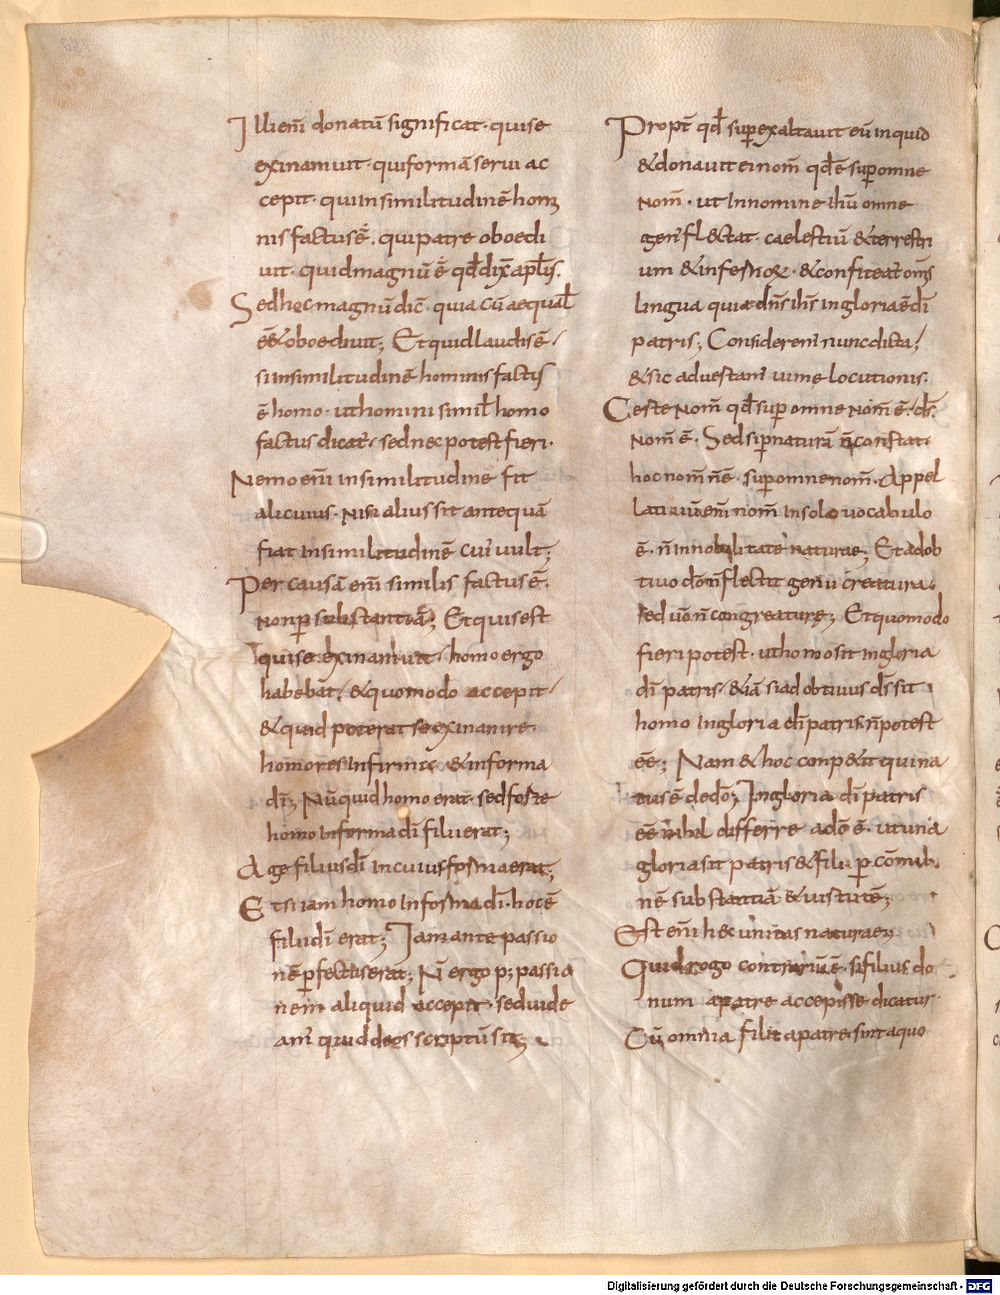 Illi eni̅ donatu̅ significat· qui se
exinaniuit· qui forma̅ serui ac
cepit· qui in similitudine̅ homi
nis factus e̅· qui patre oboedi
uit· quid magnu̅ e̅ qd̅ dix̅ apl̅s·
Sed hęc magnu̅ dic̅· quia cu̅ aequal̅
e̅e̅& oboediuit; Et quid laudis e̅/
si in similitudine̅ hominis factus
e̅ homo· ut homini simil̅ homo
factus dicat̅/ sed nec potest fieri·
Nemo eni̅ in similitudine fit
alicuius· Nisi alius sit antequa̅
fiat in similitudine̅ cui uult;
Per causa̅ eni̅ similis factus e̅·
Non p̲ substantia̅; Et quis est
qui se exinaniuit· homo ergo
habebat̅/ & quomodo accepit/
& quid poterat se exinanire·
homo res infirma· & in forma
di̅; Nu̅quid homo erat· sed forte
homo in forma di̅ filii erat;
Age filius di̅ in cuius forma erat;
Etsi iam homo in forma di̅· hoc e̅
filii di̅ erat; Iam ante passio
ne̅ p̲fectus erat; N̅ ergo p; passio
nem aliquid accepit· sed uide
am̅ quid de eo scriptu̅ sit;
Propt̅ qd̅ superexaltauit eu̅ inquid
& donauit ei nom̅ qd̅ e̅ sup̲ omne
Nom̅· ut In nomine ih̅u omne
gen̅ fl&tat· caelestiu̅ & terrestri
um & infernor· & confiteat̅ om̅s
lingua quia dn̅s ih̅s in gloria e̅ di̅
patris; Consideremi nunc dicta/
& sic aduestam̅
Ceste Nom̅ qd̅ sup̲ omne Nom̅ e̅· ds̅
Nom̅ e̅· Sed si p̲ natura̅ n̅ constat·
hoc nom̅ n̅ e̅· sup̲ omne nom̅· Appel
latiuu̅ eni̅ nom̅ In solo uocabulo
e̅· n̅ in nobilitate naturae; Et adob
tiuo do̅ n̅ flectit genu creatura·
sed uo̅ n̅ congreaturę; Et quomodo
fieri potest· ut homo sit in gloria
di̅ patris/ & ia̅ si adobtiuus ds̅ sit
homo In gloria di̅ patris n̅ potest
e̅e̅; Nam & hoc conp&it qui na
tus e̅ de do̅; In gloria di̅ patris
e̅e̅ nihil differre a do̅ e̅· ut una
gloria sit patris & filii p̲ co̅mu
ne̅ substantia̅ & uirtute̅;
Est eni̅ hęc unitas naturae;
Quid rogo contrariu̅ e̅· si filius do
num a patre accepisse dicatur·
Cu̅ omnia filii a patre sint a quo
Digitalisierung gefördert durch die Deutsche Forschungsgemeinschaft - DFG